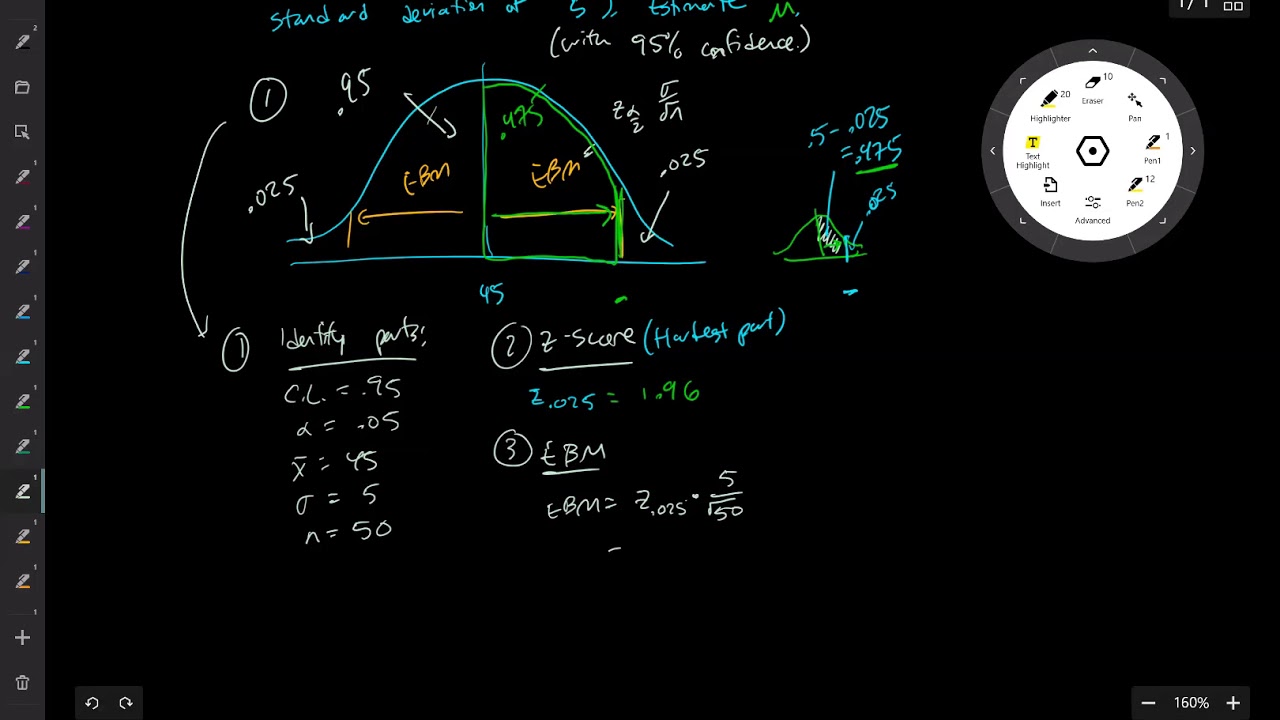 Standard deviation of 5). Estimate μ.
(with 95% confidence.)
①
.95
.475
z α/2 σ/√n
.5 - .025
= .475
.025
EBM
EBM
.025
.025
45
① Identify parts:
C.L. = .95
α = .05
x̄ = 45
σ = 5
n = 50
② Z-score (Hardest part)
Z.025 = 1.96
③ EBM
EBM = Z.025 · 5/√50
=
1 / 1
Highlighter 20
Eraser 10
Pan
Text Highlight
Pen1 1
Insert
Pen2 12
Advanced
2
1
1
1
1
1
1
1
1
1
1
160%